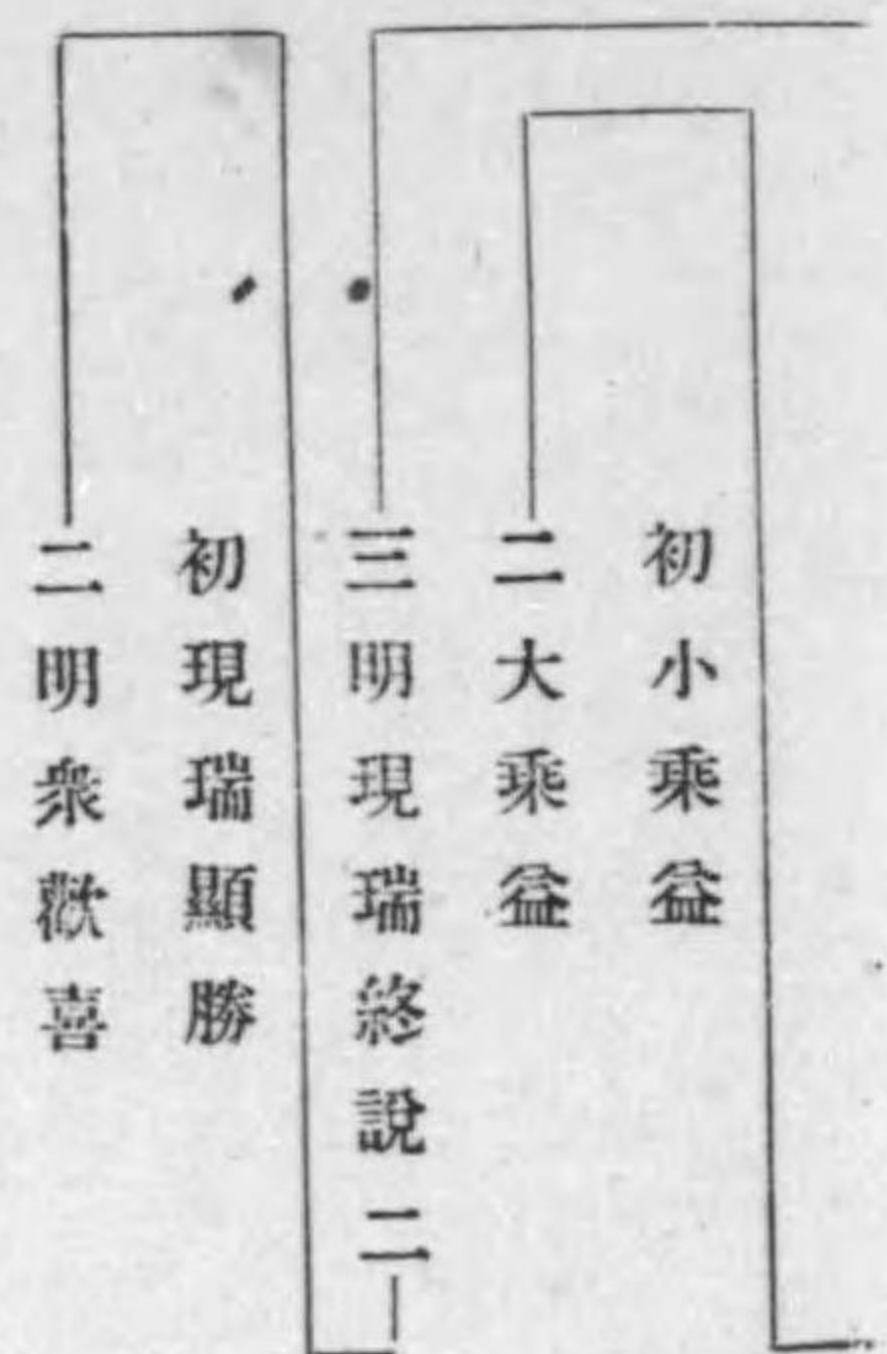 初小乘益
二大乘益
三明現瑞終說二
初現瑞顯勝
二明衆歡喜